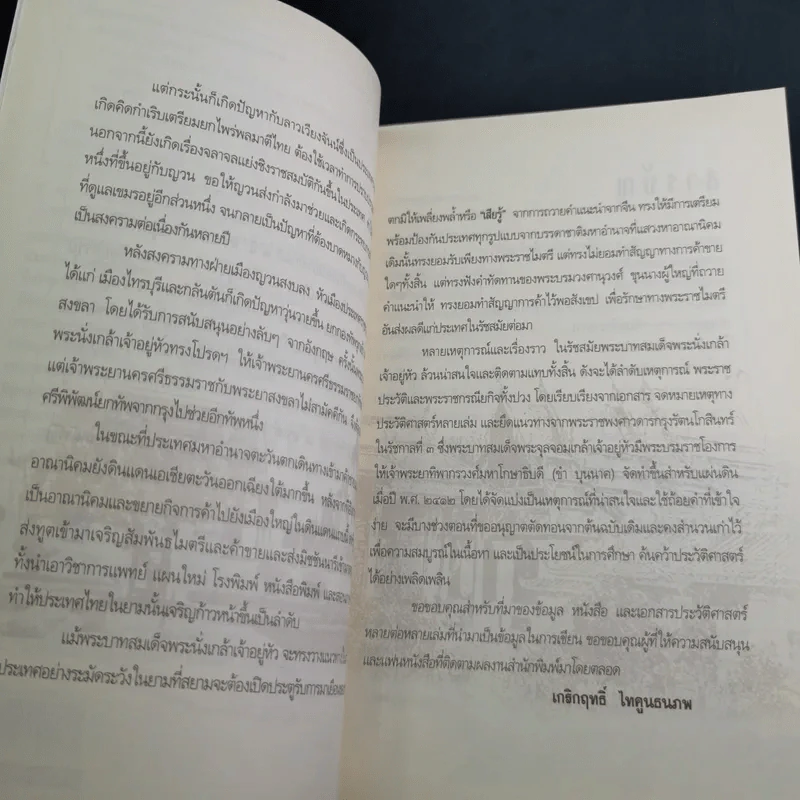 แต่กระนั้นก็เกิดปัญหากับลาวเวียงจันน์ซึ่งเป็นประเทศ
เกิดคิดกำเริบเตรียมยกไพร่พลมาตีไทย ต้องใช้เวลาทำการปราบ
นอกจากนี้ยังเกิดเรื่องจลาจลแย่งชิงราชสมบัติกันขึ้นในประเทศ
หนึ่งที่ขึ้นอยู่กับญวน ขอให้ญวนส่งกำลังมาช่วยและเกิดกระทบ
ที่ดูแลเขมรอยู่อีกส่วนหนึ่ง จนกลายเป็นปัญหาที่ต้องบาดหมาง
เป็นสงครามต่อเนื่องกันหลายปี
หลังสงครามทางฝ่ายเมืองญวนสงบลง หัวเมืองประเทศ
ได้แก่ เมืองไทรบุรีและกลันตันก็เกิดปัญหาวุ่นวายขึ้น ยกกอง
สงขลา โดยได้รับการสนับสนุนอย่างลับๆ จากอังกฤษ ครั้งนั้น
พระนั่งเกล้าเจ้าอยู่หัวทรงโปรดฯ ให้เจ้าพระยานครศรีธรรมราช
แต่เจ้าพระยานครศรีธรรมราชกับพระยาสงขลาไม่สามัคคีกัน
ศรีพิพัฒน์ยกทัพจากกรุงไปช่วยอีกทัพหนึ่ง
ในขณะที่ประเทศมหาอำนาจตะวันตกเดินทางเข้ามา
อาณานิคมยังดินแดนเอเชียตะวันออกเฉียงใต้มากขึ้น หลังจาก
เป็นอาณานิคมและขยายกิจการค้าไปยังเมืองใหญ่ในดินแดนแถบ
ส่งทูตเข้ามาเจริญสัมพันธไมตรีและค้าขายและส่งมิชชันนารี
ทั้งนำเอาวิชาการแพทย์ แผนใหม่ โรงพิมพ์ หนังสือพิมพ์ และ
ทำให้ประเทศไทยในยามนั้นเจริญก้าวหน้าขึ้นเป็นลำดับ
แม้พระบาทสมเด็จพระนั่งเกล้าเจ้าอยู่หัว จะทรงวางแนวทาง
ประเทศอย่างระมัดระวังในยามที่สยามจะต้องเปิดประตูรับการมาเยือน
สารบัญ
ตกมิให้เพลี่ยงพล้ำหรือ "เสียรู้" จากการถวายคำแนะนำจากจีน ทรงให้มีการเตรียม
พร้อมป้องกันประเทศทุกรูปแบบจากบรรดาชาติมหาอำนาจที่แสวงหาอาณานิคม
เดิมนั้นทรงยอมรับเพียงทางพระราชไมตรี แต่ทรงไม่ยอมทำสัญญาทางการค้าขาย
ใดๆทั้งสิ้น แต่ทรงฟังคำทัดทานของพระบรมวงศานุวงศ์ ขุนนางผู้ใหญ่ที่ถวาย
คำแนะนำให้ ทรงยอมทำสัญญาการค้าไว้พอสังเขป เพื่อรักษาทางพระราชไมตรี
อันส่งผลดีแก่ประเทศในรัชสมัยต่อมา
หลายเหตุการณ์และเรื่องราว ในรัชสมัยพระบาทสมเด็จพระนั่งเกล้า
เจ้าอยู่หัว ล้วนน่าสนใจและติดตามแทบทั้งสิ้น ดังจะได้ลำดับเหตุการณ์ พระราช
ประวัติและพระราชกรณียกิจทั้งปวง โดยเรียบเรียงจากเอกสาร จดหมายเหตุทาง
ประวัติศาสตร์หลายเล่ม และยึดแนวทางจากพระราชพงศาวดารกรุงรัตนโกสินทร์
ในรัชกาลที่ ๓ ซึ่งพระบาทสมเด็จพระจุลจอมเกล้าเจ้าอยู่หัวมีพระบรมราชโองการ
ให้เจ้าพระยาทิพากรวงศ์มหาโกษาธิบดี (ขำ บุนนาค) จัดทำขึ้นสำหรับแผ่นดิน
เมื่อปี พ.ศ. ๒๔๑๒ โดยได้จัดแบ่งเป็นเหตุการณ์ที่น่าสนใจและใช้ถ้อยคำที่เข้าใจ
ง่าย จะมีบางช่วงตอนที่ขออนุญาตตัดทอนจากต้นฉบับเดิมและคงสำนวนเก่าไว้
เพื่อความสมบูรณ์ในเนื้อหา และเป็นประโยชน์ในการศึกษา ค้นคว้าประวัติศาสตร์
ได้อย่างเพลิดเพลิน
ขอขอบคุณสำหรับที่มาของข้อมูล หนังสือ และเอกสารประวัติศาสตร์
หลายต่อหลายเล่มที่นำมาเป็นข้อมูลในการเขียน ขอขอบคุณผู้ที่ให้ความสนับสนุน
และแฟนหนังสือที่ติดตามผลงานสำนักพิมพ์มาโดยตลอด
เกริกฤทธิ์ ไทคูนธนภพ